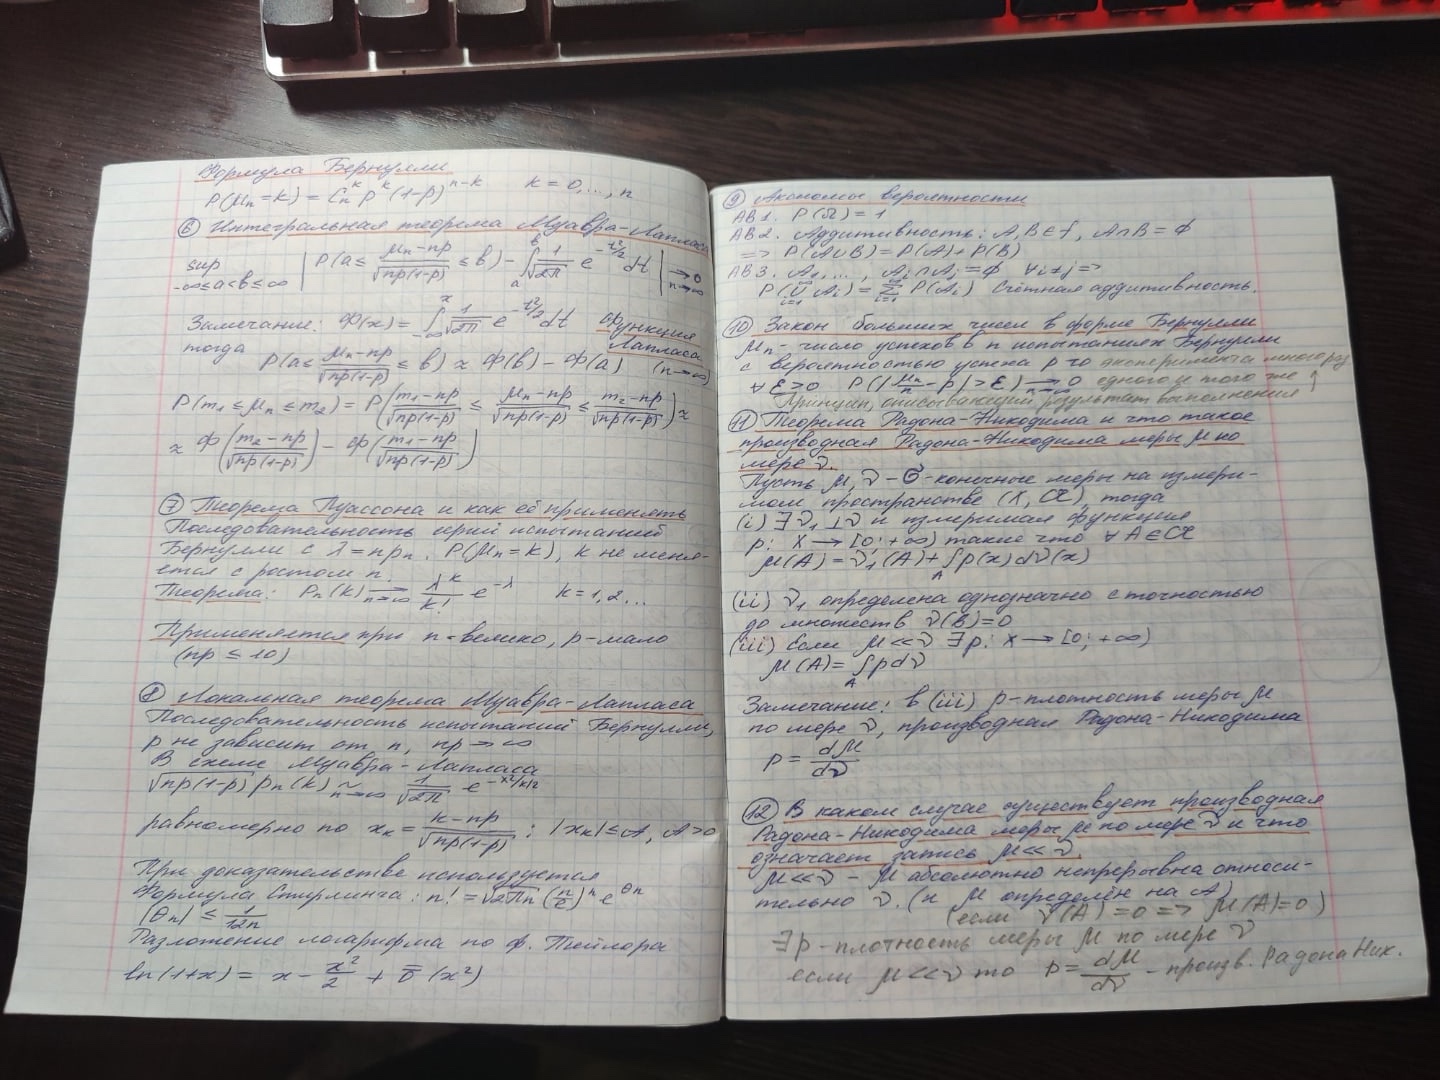 Формула Бернулли
P(μₙ=k) = Cₙᵏ pᵏ (1-p)ⁿ⁻ᵏ   k = 0,..., n
⑥ Интегральная теорема Муавра-Лапласа
sup_{-∞≤a<b≤∞} | P(a ≤ (μₙ-np)/√(np(1-p)) ≤ b) - ∫ₐᵇ 1/√(2π) e^{-t²/2} dt | →_{n→∞} 0
Замечание: Φ(x) = ∫_{-∞}^{x} 1/√(2π) e^{-t²/2} dt   функция Лапласа
тогда
P(a ≤ (μₙ-np)/√(np(1-p)) ≤ b) ≈ Φ(b) - Φ(a)   (n→∞)
P(m₁ ≤ μₙ ≤ m₂) = P((m₁-np)/√(np(1-p)) ≤ (μₙ-np)/√(np(1-p)) ≤ (m₂-np)/√(np(1-p))) ≈
≈ Φ((m₂-np)/√(np(1-p))) - Φ((m₁-np)/√(np(1-p)))
⑦ Теорема Пуассона и как её применять
Последовательность серий испытаний
Бернулли с λ = npₙ. P(μₙ=k), k не меня-
ется с ростом n.
Теорема: Pₙ(k) →_{n→∞} λᵏ/k! e^{-λ}   k = 1,2...
Применяется при n-велико, p-мало
(np ≤ 10)
⑧ Локальная теорема Муавра-Лапласа
Последовательность испытаний Бернулли,
p не зависит от n, np → ∞
В схеме Муавра-Лапласа
√(np(1-p)) Pₙ(k) ~_{n→∞} 1/√(2π) e^{-x²ₖ/2}
равномерно по xₖ = (k-np)/√(np(1-p)) : |xₖ| ≤ A, A>0
При доказательстве используется
Формула Стирлинга: n! = √(2πn) (n/e)ⁿ e^{θₙ}
|θₙ| ≤ 1/12n
Разложение логарифма по ф. Тейлора
ln(1+x) = x - x²/2 + ō(x²)
⑨ Аксиомы вероятности
AB1. P(Ω) = 1
AB2. Аддитивность: A,B∈f, A∩B = ∅
=> P(A∪B) = P(A) + P(B)
AB3. A₁,..., Aᵢ∩Aⱼ = ∅ ∀i≠j =>
P(∪_{i=1} Aᵢ) = Σ_{i=1}^{∞} P(Aᵢ) Счётная аддитивность.
⑩ Закон больших чисел в форме Бернулли
μₙ - число успехов в n испытаниях Бернулли
с вероятностью успеха p то эксперимента много раз
∀ε>0 P(|μₙ/n - p| > ε) →_{n→∞} 0 одного и того же
Принцип, описывающий результат выполнения
⑪ Теорема Радона-Никодима и что такое
производная Радона-Никодима меры μ по
мере ν.
Пусть μ, ν - σ-конечные меры на измери-
мом пространстве (X, 𝒜), тогда
(i) ∃ν₁ ⊥ ν и измеримая функция
p: X → [0; +∞) такие что ∀A∈𝒜
μ(A) = ν₁(A) + ∫_A p(x) dν(x)
(ii) ν₁ определена однозначно с точностью
до множеств ν(B) = 0
(iii) Если μ << ν ∃p: X → [0; +∞)
μ(A) = ∫_A p dν
Замечание: в (iii) p-плотность меры μ
по мере ν, производная Радона-Никодима
p = dμ/dν
⑫ В каком случае существует производная
Радона-Никодима меры μ по мере ν и что
означает запись μ << ν.
μ << ν - μ абсолютно непрерывна относи-
тельно ν. (и μ определён на A)
(если ν(A) = 0 => μ(A) = 0)
∃p - плотность меры μ по мере ν
если μ << ν то p = dμ/dν - произв. Радона Ник.